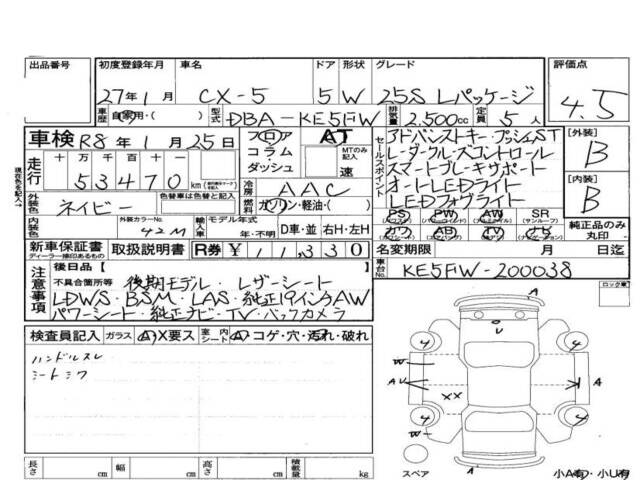 出品番号 初度登録年月 車名 ドア 形状 グレード 評価点
27年1月 CX-5 5 W 25S Lパッケージ 4.5
車歴 自家用・( ) 型式 DBA-KE5FW 排気量 2,500cc 定員 5人
車検 R8年1月25日 フロア コラム ダッシュ AT MTのみ記入 速
セールスポイント
アドバンストキー・プッシュST
レーダークルーズコントロール
スマートブレーキサポート
オートLEDライト
LEDフォグライト
[外装] B
[内装] B
現在色を記入→
走行 十 万 千 百 十 53470 km
冷房 AAC
外装色 ネイビー 色替車は色替と記入 燃料 ガソリン・軽油・( )
内装色 外装カラーNo. 42M 輸入車 モデル年式 年・不明 D車・並 右H・左H
PS (パワステ) PW (パワーウインド) AW (アルミホイル) SR (サンルーフ)
カワ AB (エアバッグ) TV ナビ
純正品のみ丸印
新車保証書 ディーラー捺印あるもの 取扱説明書 R券 ¥11,330 名変期限 月 日迄
注意事項 後日品[ ]
不具合箇所等 後期モデル・レザーシート
LDWS・BSM・LAS・純正19インチAW
パワーシート・純正ナビ・TV・バックカメラ
車台No. KE5FW-200038
ロック車
検査員記入 ガラス A X要ス 室内シート A コゲ・穴・汚れ・破れ
ハンドルスレ
シートシワ
A
U
4 4
W
AU A
XX
4 4
W A
スペア 小A有・小U有
長さ cm 幅 cm 高さ cm 積載量 kg